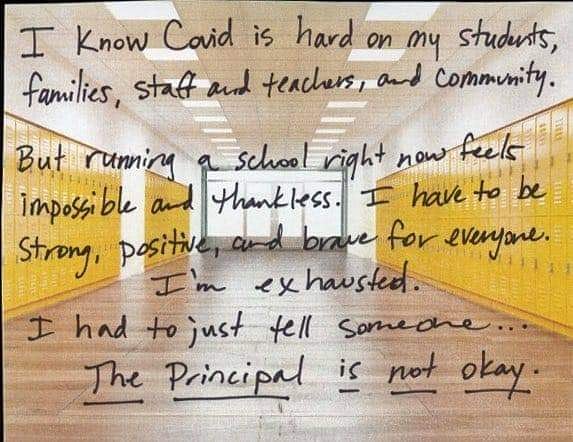 I know Covid is hard on my students,
families, staff and teachers, and community.
But running a school right now feels
impossible and thankless. I have to be
strong, positive, and brave for everyone.
I'm exhausted.
I had to just tell someone...
The Principal is not okay.